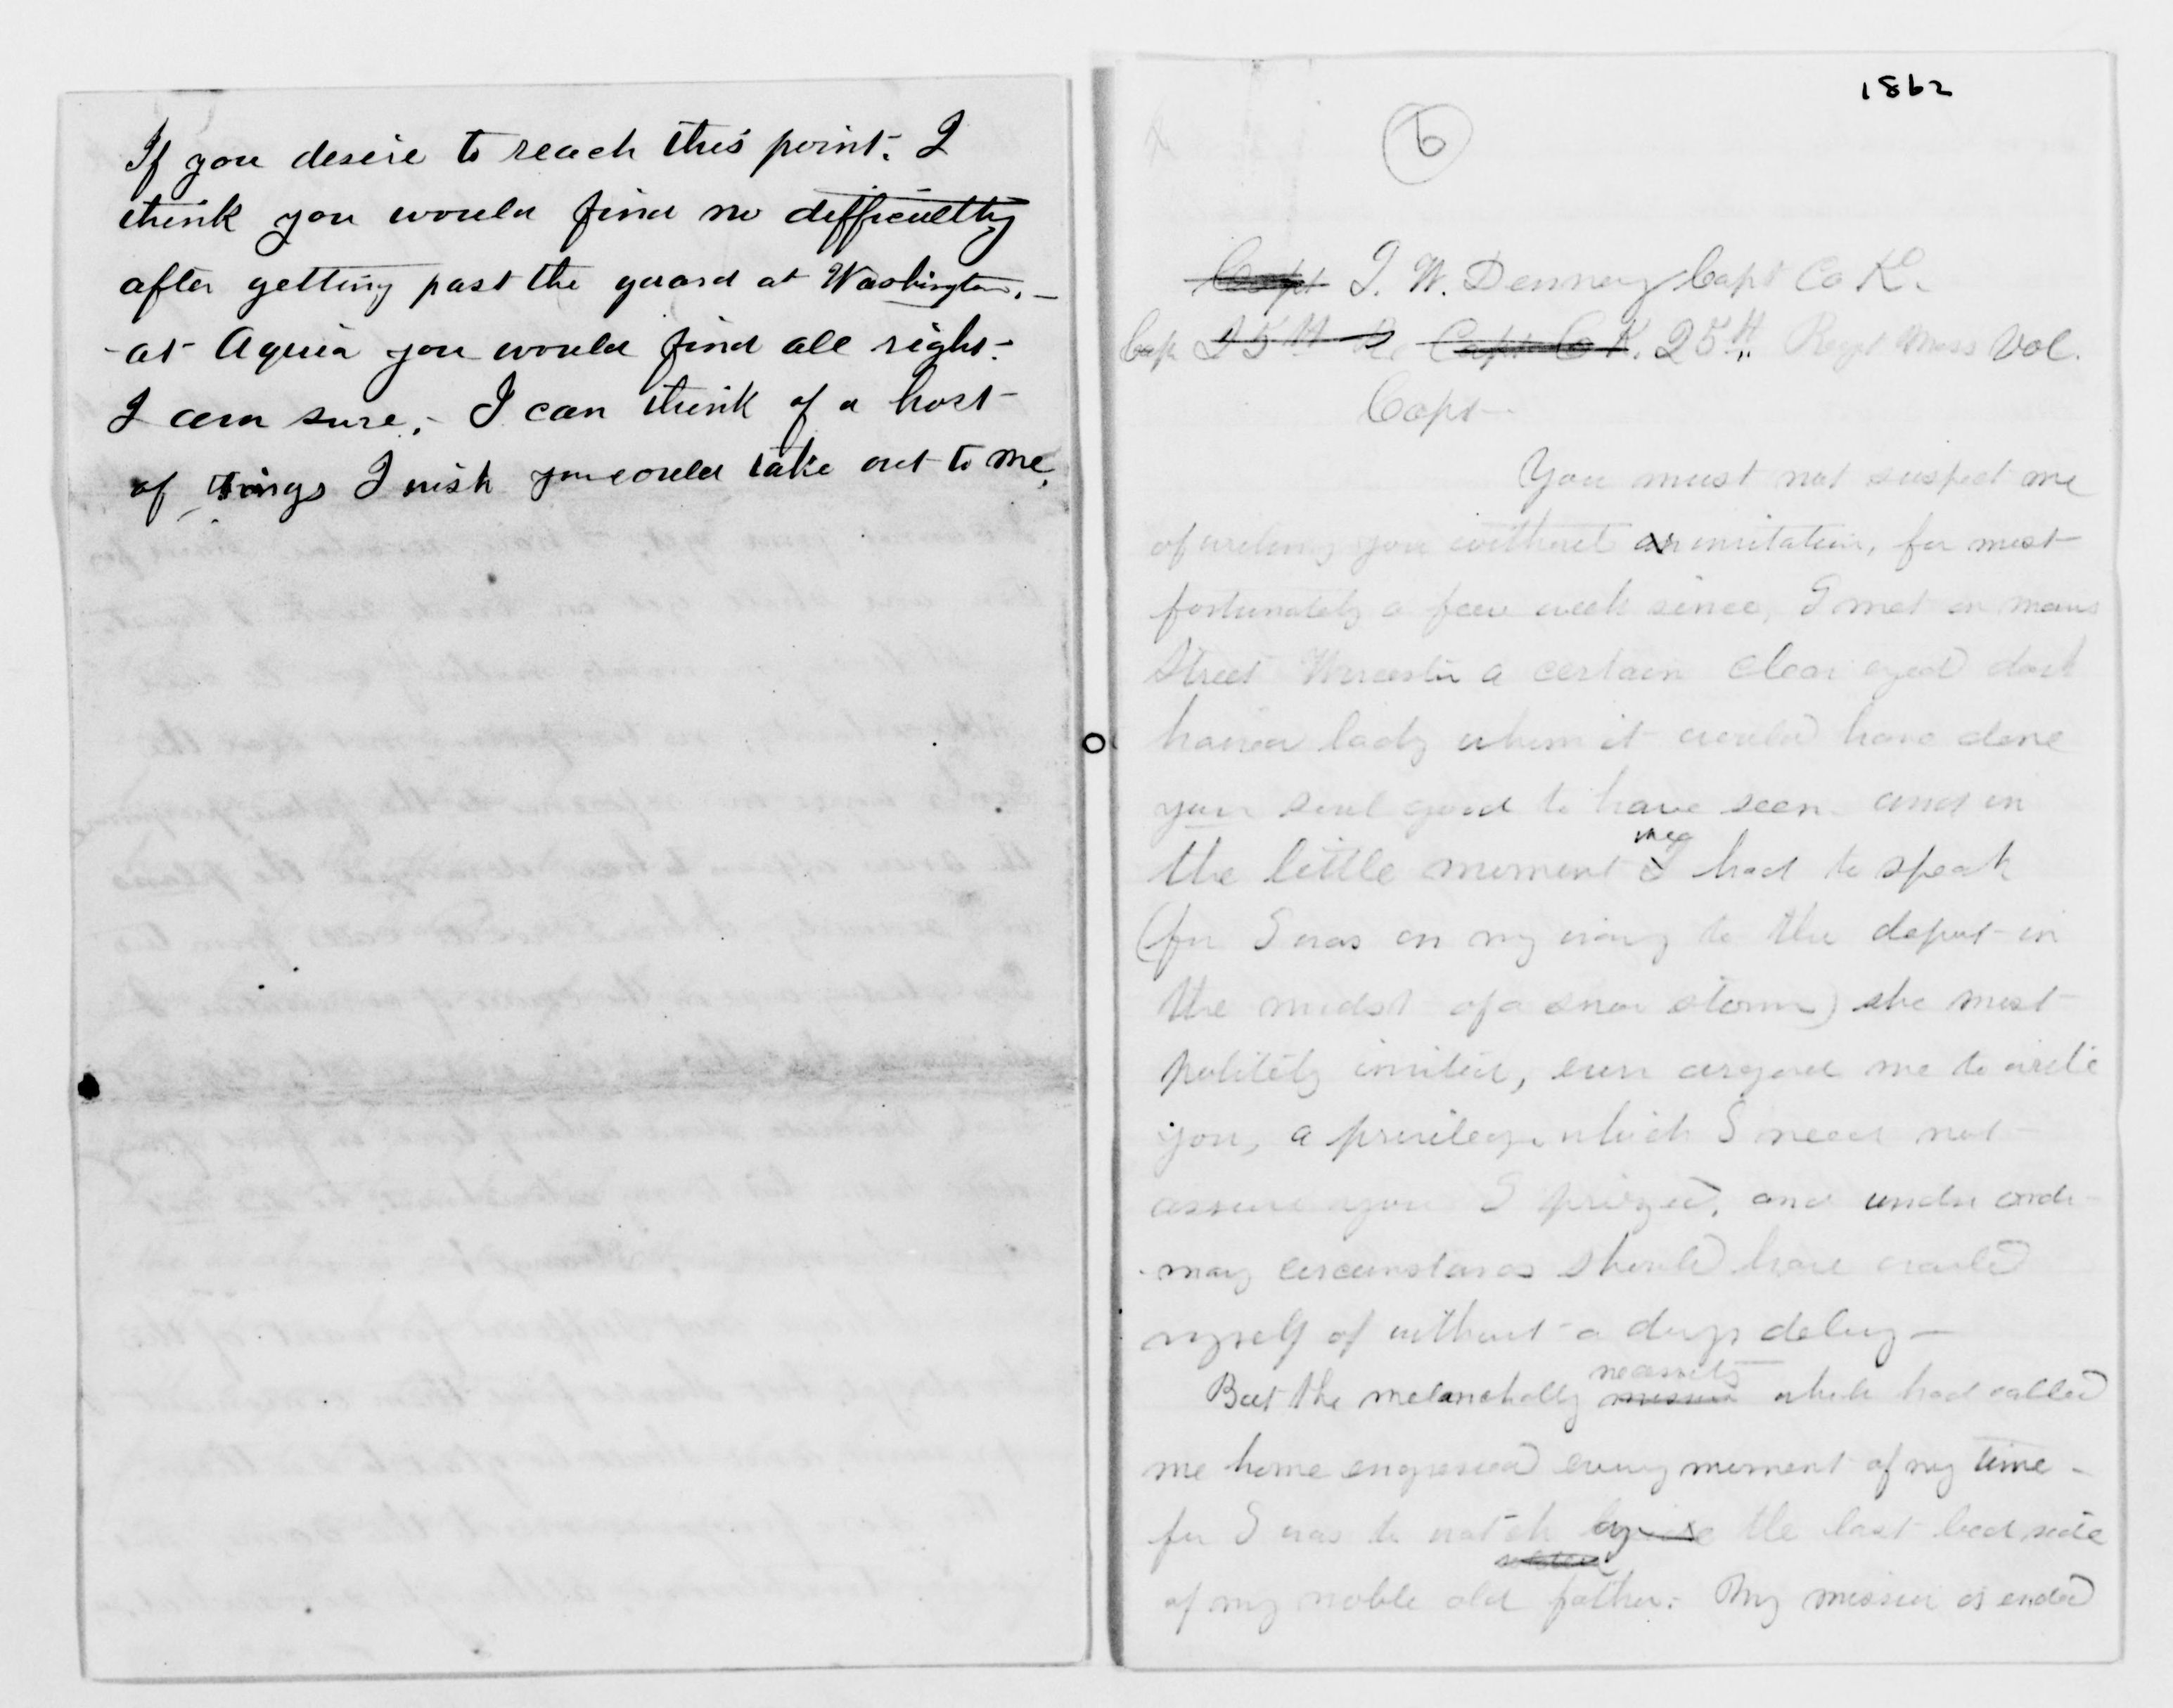 If you desire to reach this point. I
think you would find no difficultty
after getting past the guard at Washington, —
- at Aquia you would find all right -
I am sure, - I can think of a host
of things I wish you could take out to me.
1862
6
Capt J. W. Denney Capt Co K.
Cap 25th Capt Co K. 25th Regt Mass Vol.
Capt -
You must not suspect me
of writing you without an invitation, for most
fortunately a few week since, I met on main
Street Worcester a certain clear eyed dark
haired lady whom it would have done
your soul good to have seen and in
the little moment I had to speak
(for I was on my way to the depot in
the midst of a snow storm) she most
politely invited, even urged me to write
you, a privilege which I need not
assure you I prized, and under ordi-
nary circumstances should have availed
myself of without a days delay —
necessity
But the melancholly mission which had called
me home engrossed every moment of my time -
for I was to watch by the last bed side
of my noble old father. My mission is ended